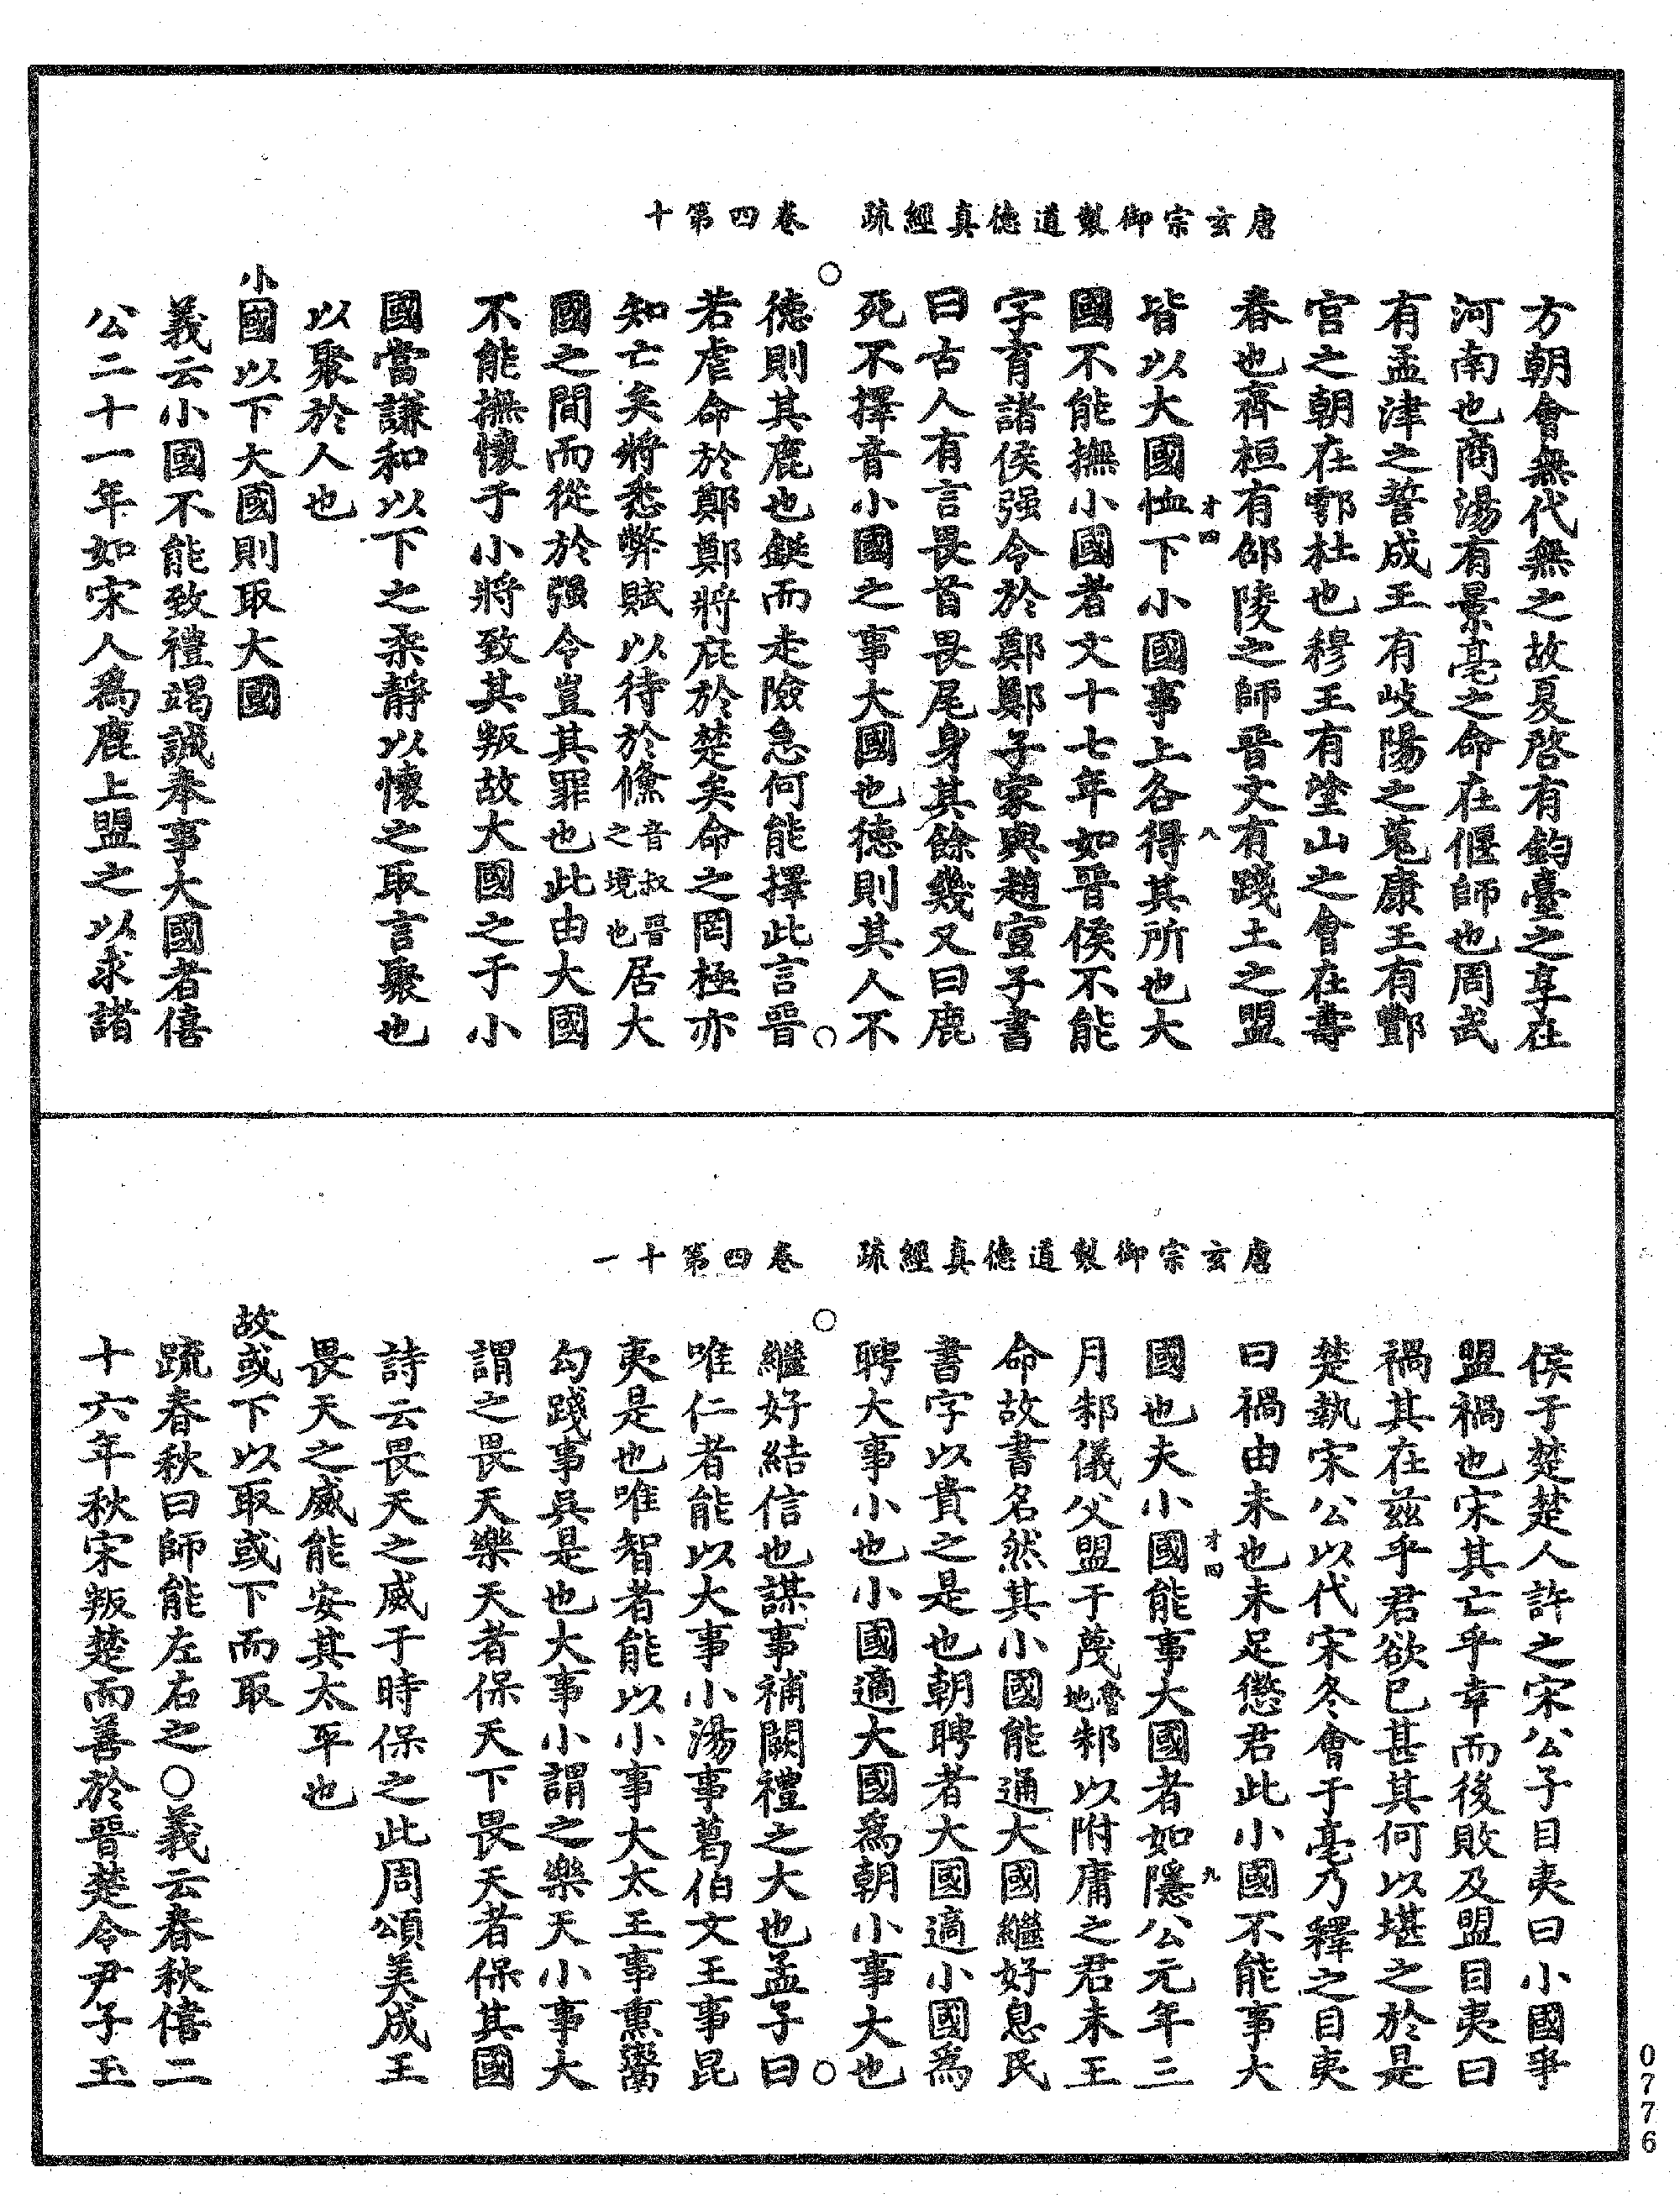 唐玄宗御製道德真經疏　卷四第十
方朝會無代無之故夏啓有鈞臺之享在
河南也商湯有景亳之命在偃師也周武
有孟津之誓成王有岐陽之蒐康王有酆
宮之朝在鄠杜也穆王有塗山之會在壽
春也齊桓有邵陵之師晉文有踐土之盟
才四　八
皆以大國恤下小國事上各得其所也大
國不能撫小國者文十七年如晉侯不能
字育諸侯强令於鄭鄭子家與趙宣子書
曰古人有言畏首畏尾身其餘幾又曰鹿
死不擇音小國之事大國也德則其人不
德則其鹿也鋌而走險急何能擇此言晉
若虐命於鄭鄭將庇於楚矣命之罔極亦
知亡矣將悉弊賦以待於鯈音叔晉之境也居大
國之間而從於强令豈其罪也此由大國
不能撫懷于小將致其叛故大國之于小
國當謙和以下之柔靜以懷之取言聚也
以聚於人也
小國以下大國則取大國
義云小國不能致禮竭誠奉事大國者僖
公二十一年如宋人爲鹿上盟之以求諸
唐玄宗御製道德真經疏　卷四第十一
侯于楚楚人許之宋公子目夷曰小國爭
盟禍也宋其亡乎幸而後敗及盟目夷曰
禍其在茲乎君欲已甚其何以堪之於是
楚執宋公以代宋冬會于亳乃釋之目夷
曰禍由未也未足懲君此小國不能事大
才四　九
國也夫小國能事大國者如隱公元年三
月邾儀父盟于蔑魯地邾以附庸之君未王
命故書名然其小國能通大國繼好息民
書字以貴之是也朝聘者大國適小國爲
聘大事小也小國適大國爲朝小事大也
繼好結信也謀事補闕禮之大也孟子曰
唯仁者能以大事小湯事葛伯文王事昆
夷是也唯智者能以小事大太王事熏鬻
勾踐事吳是也大事小謂之樂天小事大
謂之畏天樂天者保天下畏天者保其國
詩云畏天之威于時保之此周頌美成王
畏天之威能安其太平也
故或下以取或下而取
疏春秋曰師能左右之○義云春秋僖二
十六年秋宋叛楚而善於晉楚令尹子玉
0776